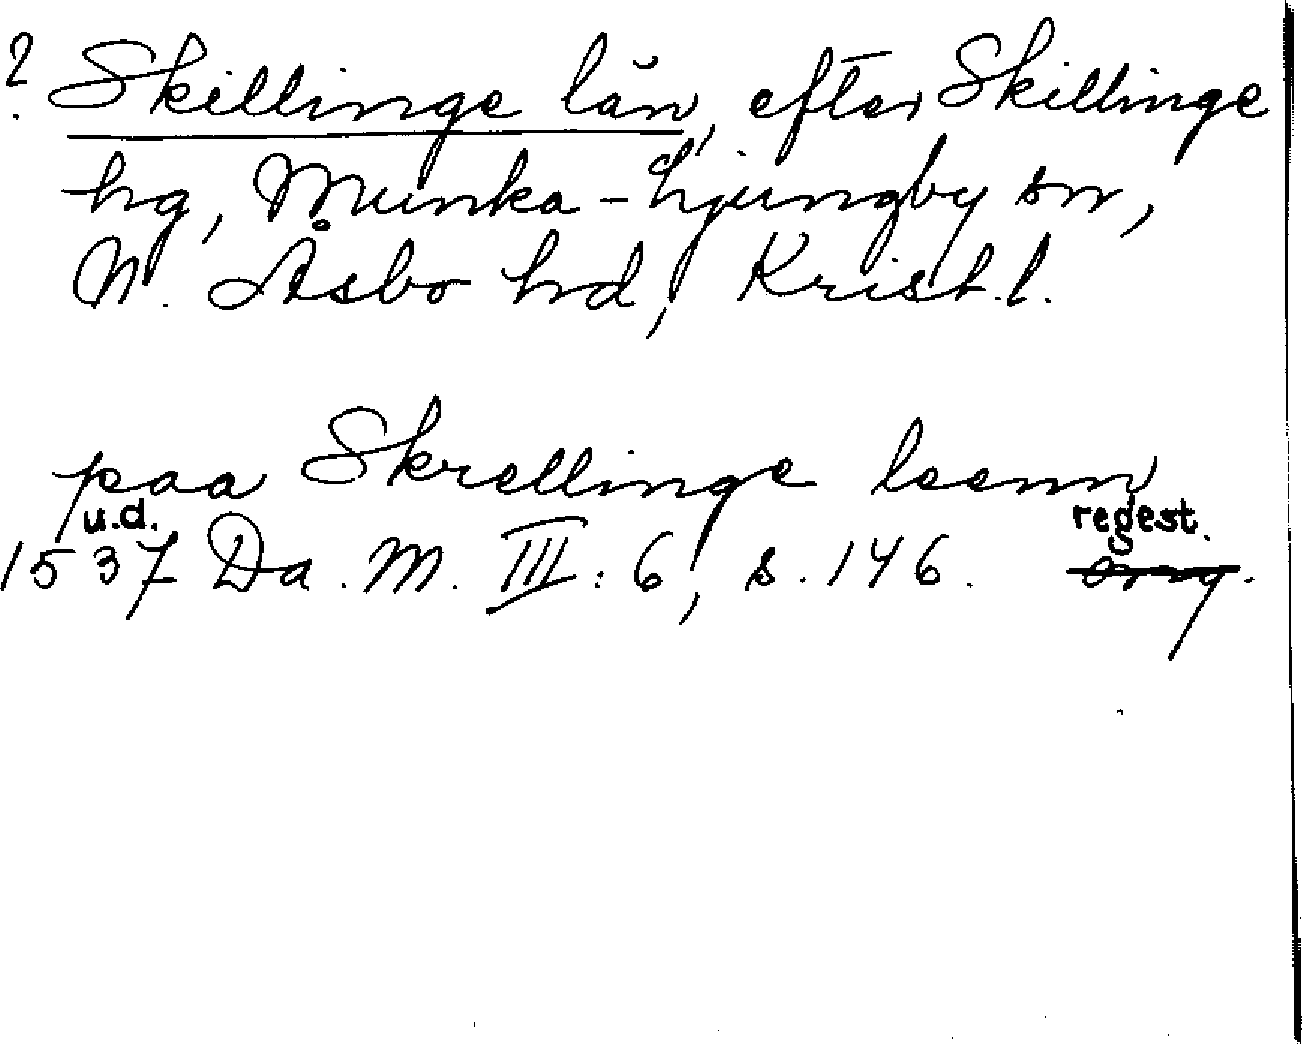 ? Skillinge län, efter Skillinge
hg, Munka-Ljungby sn,
N. Åsbo hd, Krist.l.
paa Skrellinge leenn
u.d. regest.
1537 Da. M. III:6, s. 146.